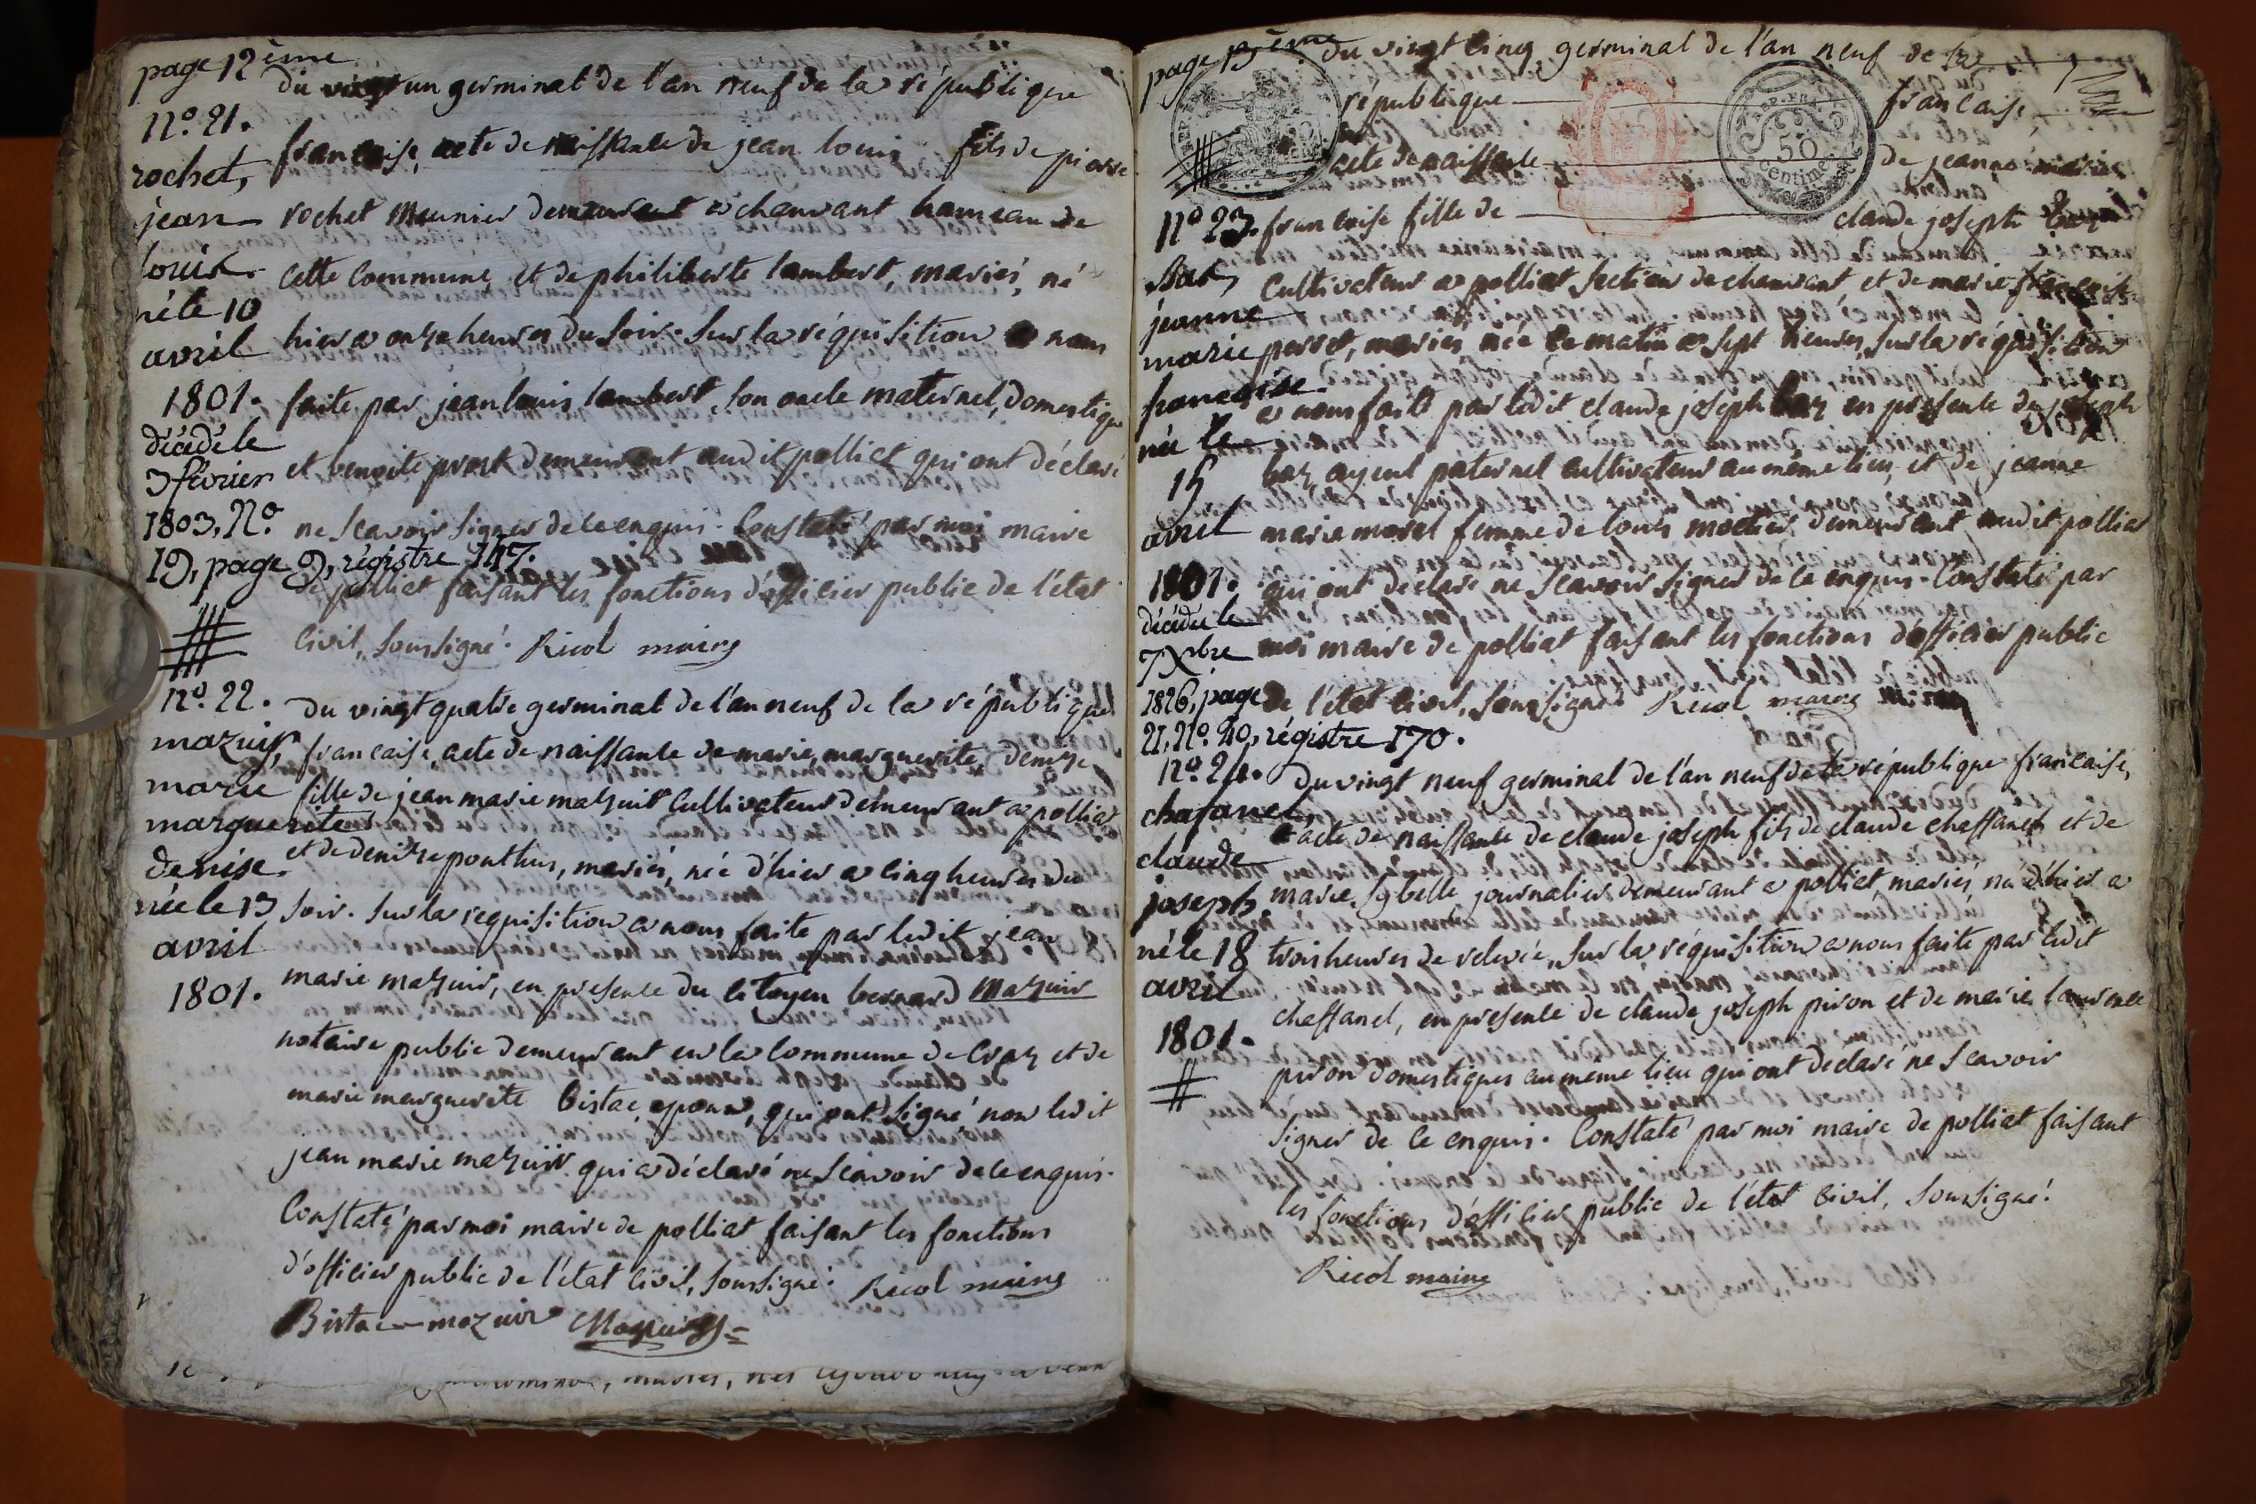 page 12ème
du vingt un germinal de l'an neuf de la république
n.º 21.
rochet,
jean
louis.
né le 10
avril
1801.
décédé le
3 février
1803, N.º
19, page 9, régistre 147.
française, acte de naissance de jean louis fils de pierre
rochet meunier demeurant a chanvant hameau de
cette commune, et de philiberte lambert, mariés, né
hier a onze heures du soir. sur la réquisition a nous
faite par jean louis lambert, son oncle maternel, domestique
et benoite prost demeurant audit polliat qui ont déclaré
ne scavoir signer de ce enquis. Constaté par moi maire
de polliat faisant les fonctions d'officier public de l'état
civil, soussigné. Ricol maire
n.º 22.
mazuir,
marie
marguerite
denise.
née le 13
avril
1801.
du vingt quatre germinal de l'an neuf de la république
francaise, acte de naissance de marie, marguerite, denise
fille de jean marie mazuir cultivateur demeurant a polliat
et de denise ponthus, mariés, née d'hier a cinq heures du
soir. sur la requisition a nous faite par ledit jean
marie mazuir, en presence du citoyen bernard mazuir
notaire public demeurant en la commune de Craz et de
marie marguerite bistac epoux, qui ont signé non ledit
jean marie mazuir qui a déclaré ne scavoir de ce enquis.
Constaté par moi maire de polliat faisant les fonctions
d'officier public de l'état civil, soussigné. Ricol maire
Bistac mazuir Mazuir
page 13ème
du vingt cinq germinal de l'an neuf de la
république française
acte de naissance de jeanne marie
n.º 23.
Bas,
jeanne
marie
francoise.
née le
15
avril
1801.
décédée le
7 Xbre
1826, page
21, N.º 40, régistre 170.
francoise fille de claude joseph
cultivateur a polliat section de chanvant et de marie francoise
perret, mariés née ce matin a sept heures, sur la réquisition
a nous faite par ledit claude joseph baz en presence de joseph
baz, ayeul paternel cultivateur au même lieu, et de jeanne
marie morel femme de louis moctier demeurant audit polliat
qui ont declaré ne scavoir signer de ce enquis. Constaté par
moi maire de polliat faisant les fonctions d'officier public
de l'état civil, soussigné. Ricol maire
n.º 24.
chafanel,
claude
joseph
né le 18
avril
1801.
du vingt neuf germinal de l'an neuf de la république francaise,
acte de naissance de claude joseph fils de claude chaffanel et de
marie sybelle journalier demeurant a polliat, mariés né d'hier a
trois heures de relevée, sur la réquisition a nous faite par ledit
chaffanel, en presence de claude joseph piron et de marie laurence
piron domestiques au meme lieu qui ont declaré ne scavoir
signer de ce enquis. Constaté par moi maire de polliat faisant
les fonctions d'officier public de l'état civil, soussigné.
Ricol maire